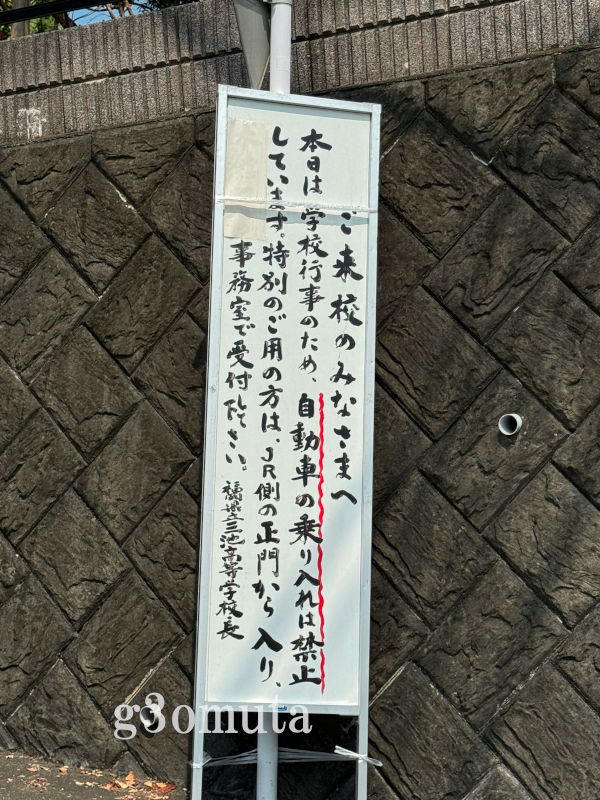 ご来校のみなさまへ
本日は学校行事のため、自動車の乗り入れは禁止
しています。特別のご用の方は、JR側の正門から入り、
事務室で受付して下さい。
福岡県立三池高等学校長
g3omuta